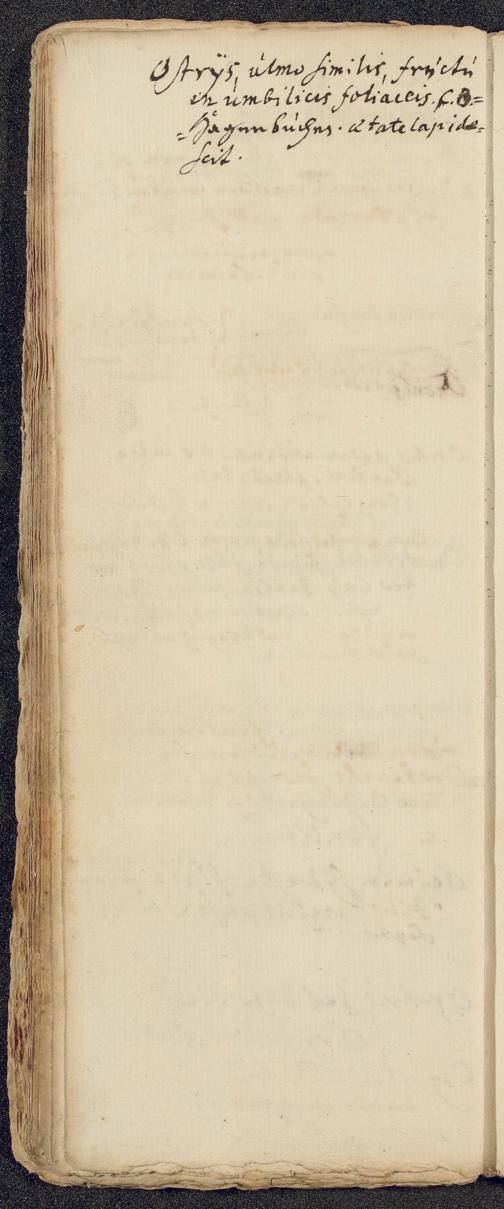 Ostrÿs, ulmo similis, fructu
in umbilicis foliaceis. C. B=
=Hagenbuchen. ætate lapide=
scit.